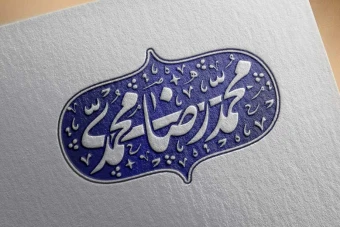 محمدرضا محمدی